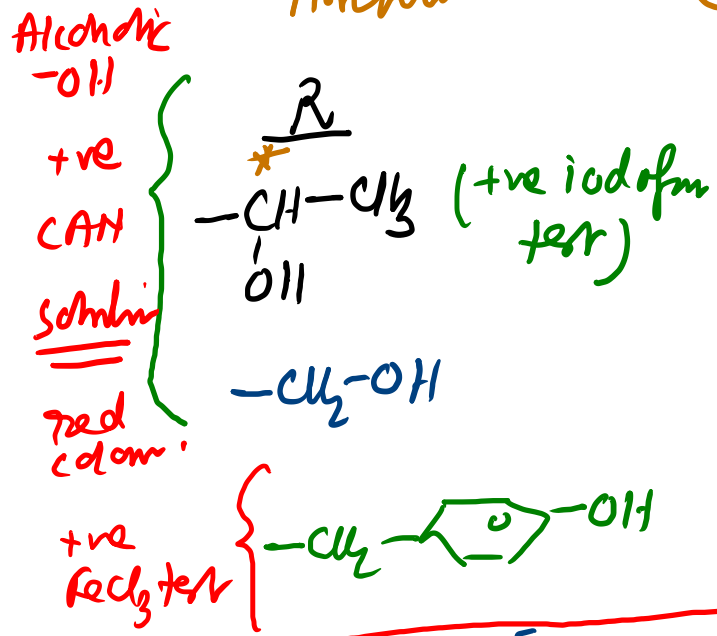 Alcoholic
-OH
+ve
CAN
solution
red
colour.
R
*
-CH-CH3 (+ve iodoform
OH test)
-CH2-OH
+ve
FeCl3 test
-CH2 -OH